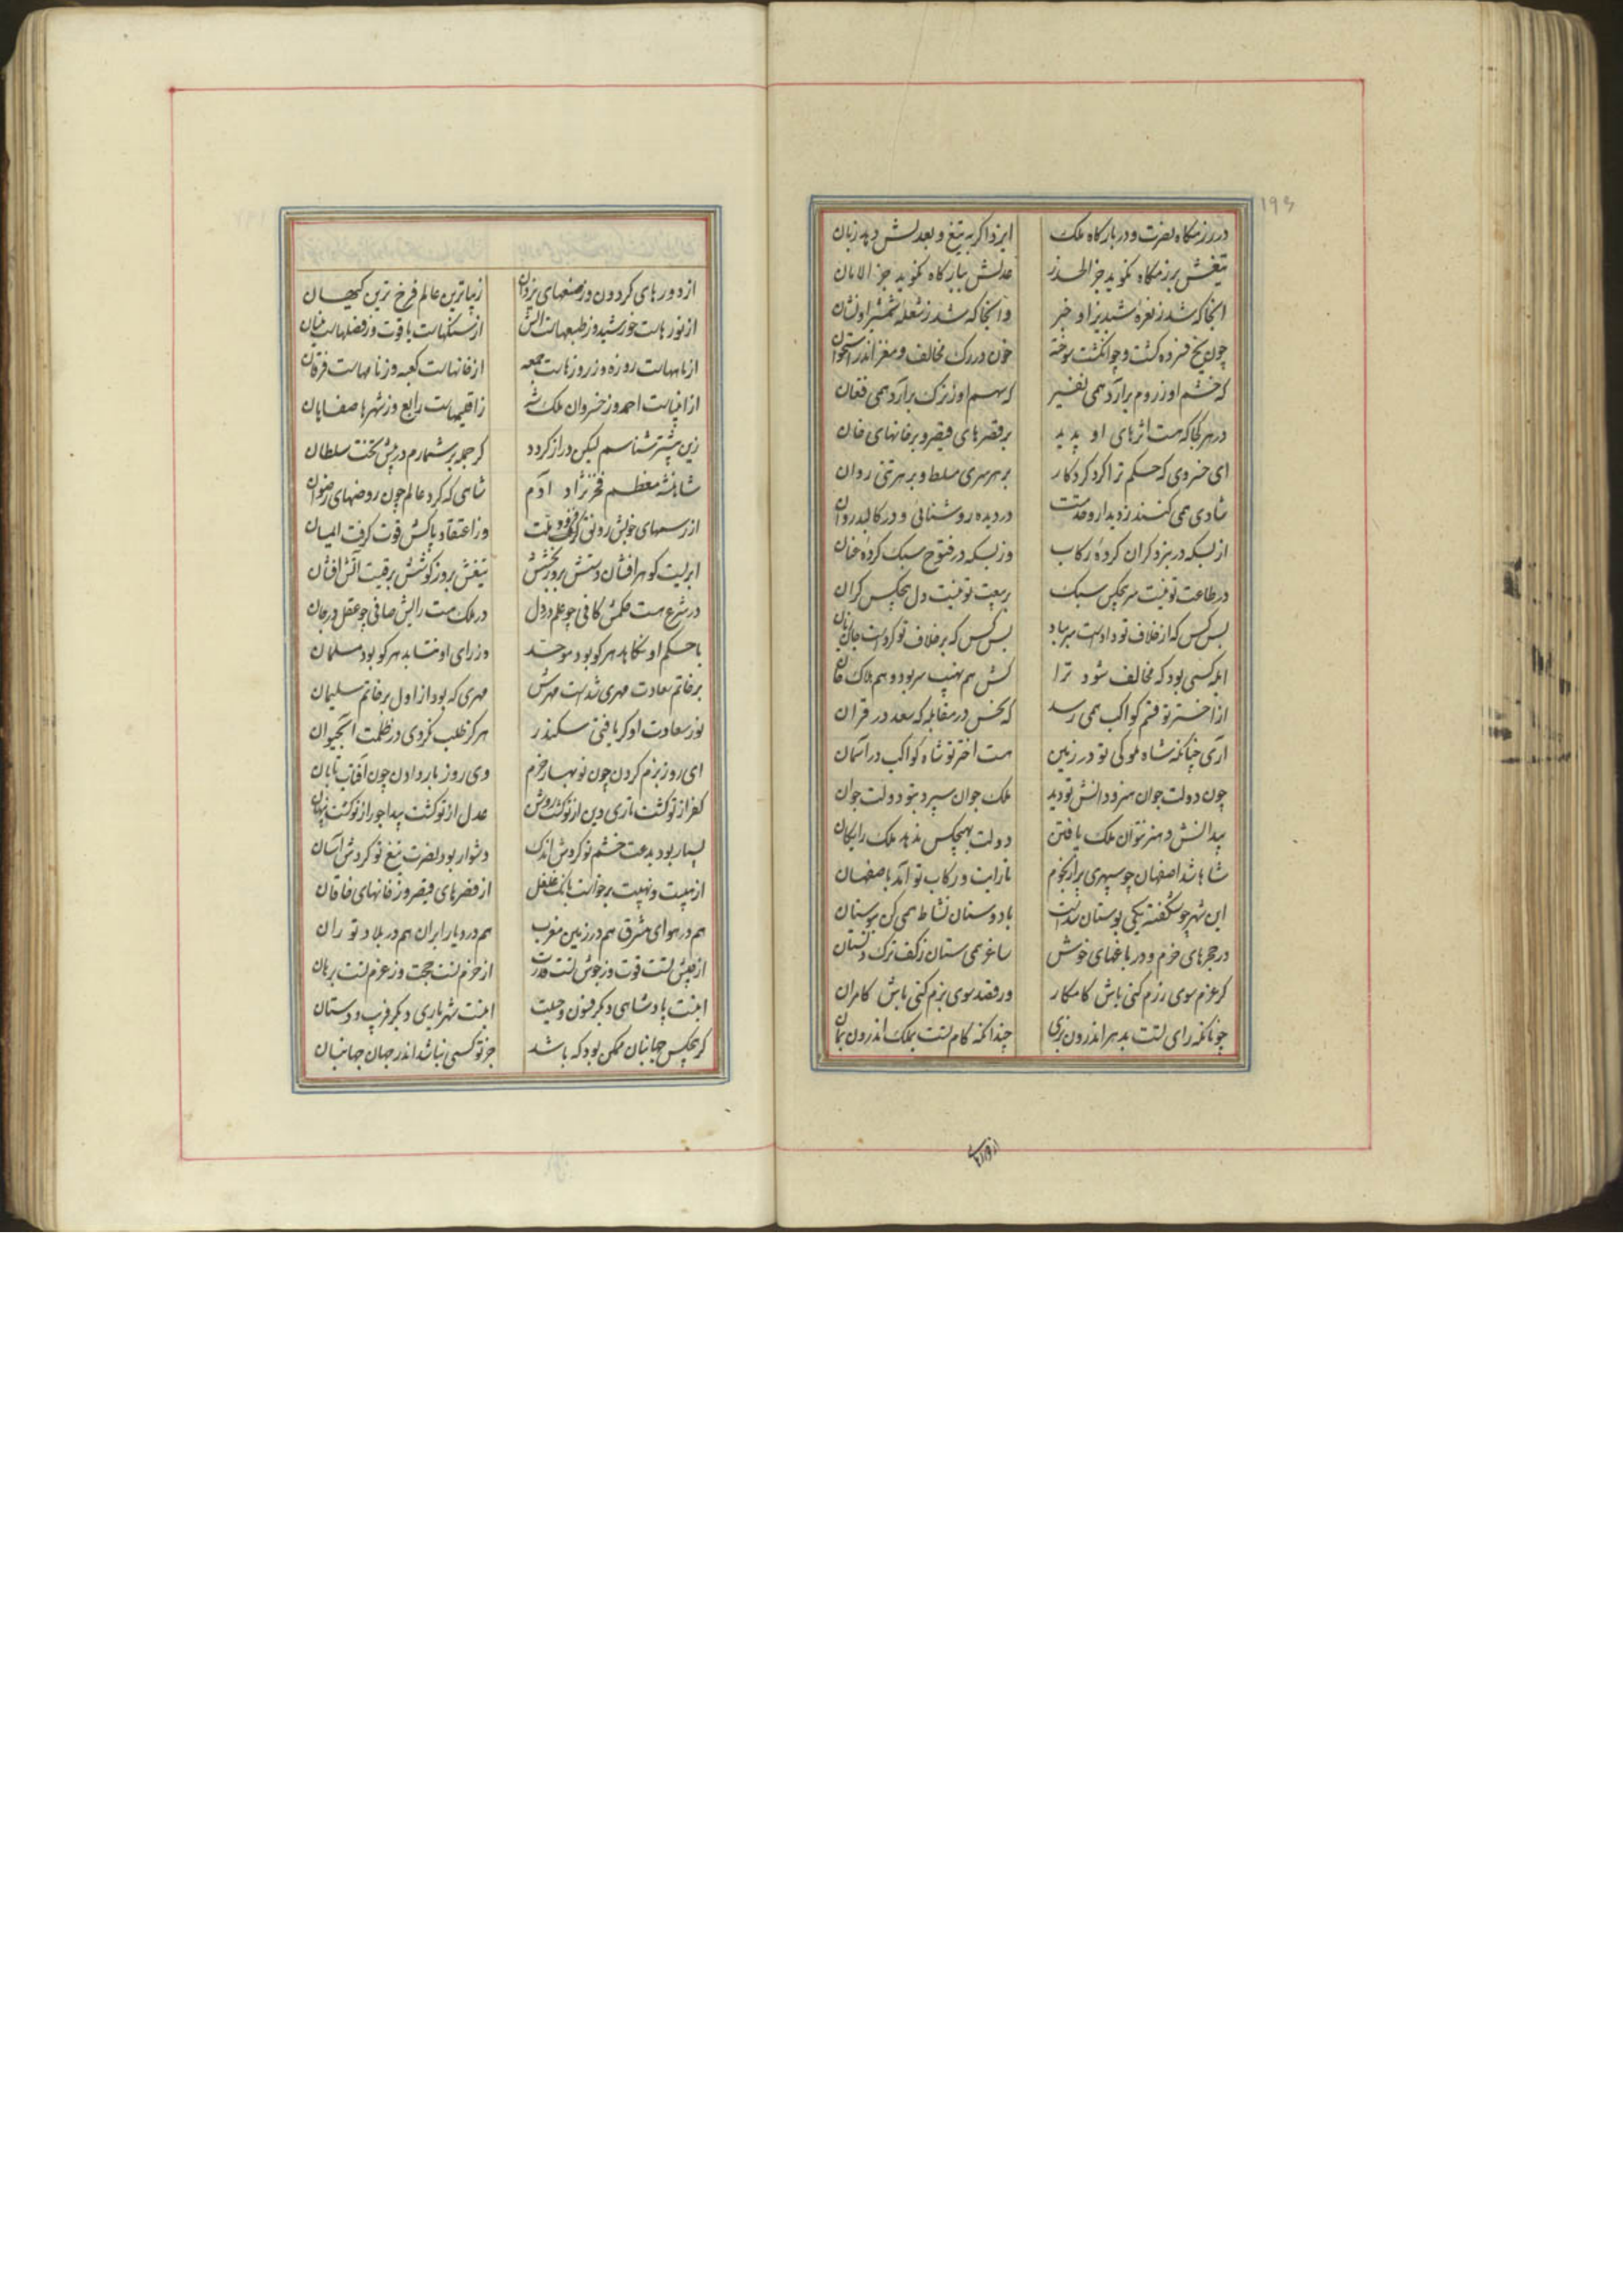 ۱۹۶
در رزمگاه نصرت و در بارگاه ملک ایزد اگر به تیغ و بعدلش دهد زبان
تیغش برزمگاه نگوید جز الحذر عدلش ببارگاه نگوید جز الامان
آنجا که شد ز نعره شبدیز او خبر وآنجا که شد ز شعله شمشیر او نشان
چون یخ فسرده گشت و چو انگشت سوخته خون در رگ مخالف و مغز اندر استخوان
که خشم او ز روم برآرد همی نفیر که سهم او ز ترک برآرد همی فغان
در هر کجا که هست اثرهای او پدید بر قصرهای قیصر و بر خانهای خان
ای خسروی که حکم ترا کرد کردگار بر هر سری مسلط و بر هر تنی روان
شادی همی کنند ز دیدار و خدمتت در دیده روشنائی و در کالبد روان
از بسکه در نبرد گران کرده رکاب وز بسکه در فتوح سبک کرده عنان
در طاعت تو نیست سر هیچکس سبک بر بیعت تو نیست دل هیچکس گران
بس کس که از خلاف تو دادست سر بباد بس کس که بر خلاف تو کردست جان زیان
ابله کسی بود که مخالف شود ترا کش هم نهیب سر بود و هم هلاک جان
از اختر تو قسم کواکب همی رسد که نحس در مقابله که سعد در قران
آری چنانکه شاه ملوکی تو در زمین هست اختر تو شاه کواکب در آسمان
چون دولت جوان هنر و دانش تو دید ملک جوان سپرد بتو دولت جوان
بیدانش و هنر نتوان ملک یافتن دولت بهیچکس ندهد ملک رایگان
شاها شد اصفهان چو سپهری پر از نجوم تا رایت و رکاب تو آمد باصفهان
این شهر چو شکفته یکی بوستان شدست با دوستان نشاط همی کن ببوستان
در حجرهای خرم و در باغهای خوش ساغر همی ستان ز کف ترک دلستان
گر عزم سوی رزم کنی باش کامکار ور قصد سوی بزم کنی باش کامران
چونانکه رای تست بدهر اندرون بزی چندانکه کام تست بملک اندرون بمان
از دورهای
از دورهای گردون وز صنعهای یزدان زیباترین عالم فرخ ترین کیهان
از نورهاست خورشید وز طبعهاست آتش از سنگهاست یاقوت وز فصلهاست نیسان
از ماههاست روزه وز روزهاست جمعه از خانهاست کعبه وز نامهاست فرقان
از انبیاست احمد وز خسروان ملکشه ز اقلیمهاست رابع وز شهرها صفاهان
زین بیشتر شناسم لیکن دراز گردد گر جمله برشمارم در پیش تخت سلطان
شاهنشه معظم فخر نژاد آدم شاهی که کرد عالم چون روضهای رضوان
از رسمهای خوبش رونق گرفت و ملت وز اعتقاد پاکش قوت گرفت ایمان
ابریست گوهر افشان دستش بروز بخشش تیغش بروز کوشش برقیست آتش افشان
در شرع هست حکمش کافی چو علم در دل در ملک هست رایش صافی چو عقل در جان
با حکم او نکاهد هر کو بود موحد وز رای او نتابد هر کو بود مسلمان
بر خاتم سعادت مهری شدست مهرش مهری که بود از اول بر خاتم سلیمان
نور سعادت او گر یافتی سکندر هرگز طلب نکردی در ظلمت آب حیوان
ای روز بزم کردن چون نوبهار خرم وی روز بار دادن چون آفتاب تابان
کفر از تو گشت تاری دین از تو گشت روشن عدل از تو گشت پیدا جور از تو گشت پنهان
بسیار بود بدعت خشم تو کردش اندک دشوار بود نصرت تیغ تو کردش آسان
از هیبت و نهیبت برخاست بانگ غلغل از قصرهای قیصر وز خانهای خاقان
هم در هوای مشرق هم در زمین مغرب هم در دیار ایران هم در بلاد توران
از جیش تست قوت وز جوش تست قدرت از حزم تست حجت وز عزم تست برهان
اینست پادشاهی دیگر فسون و حیلت اینست شهریاری دیگر فریب و دستان
گر هیچکس جهانبان ممکن بود که باشد جز تو کسی نباشد اندر جهان جهانبان